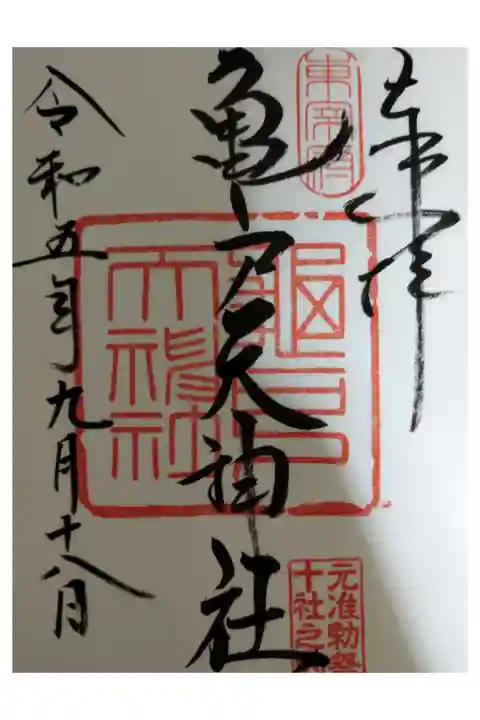 奉拝
亀戸天神社
令和五年九月十八日
東宰府
龜戸
天神社
元准勅祭
十社之